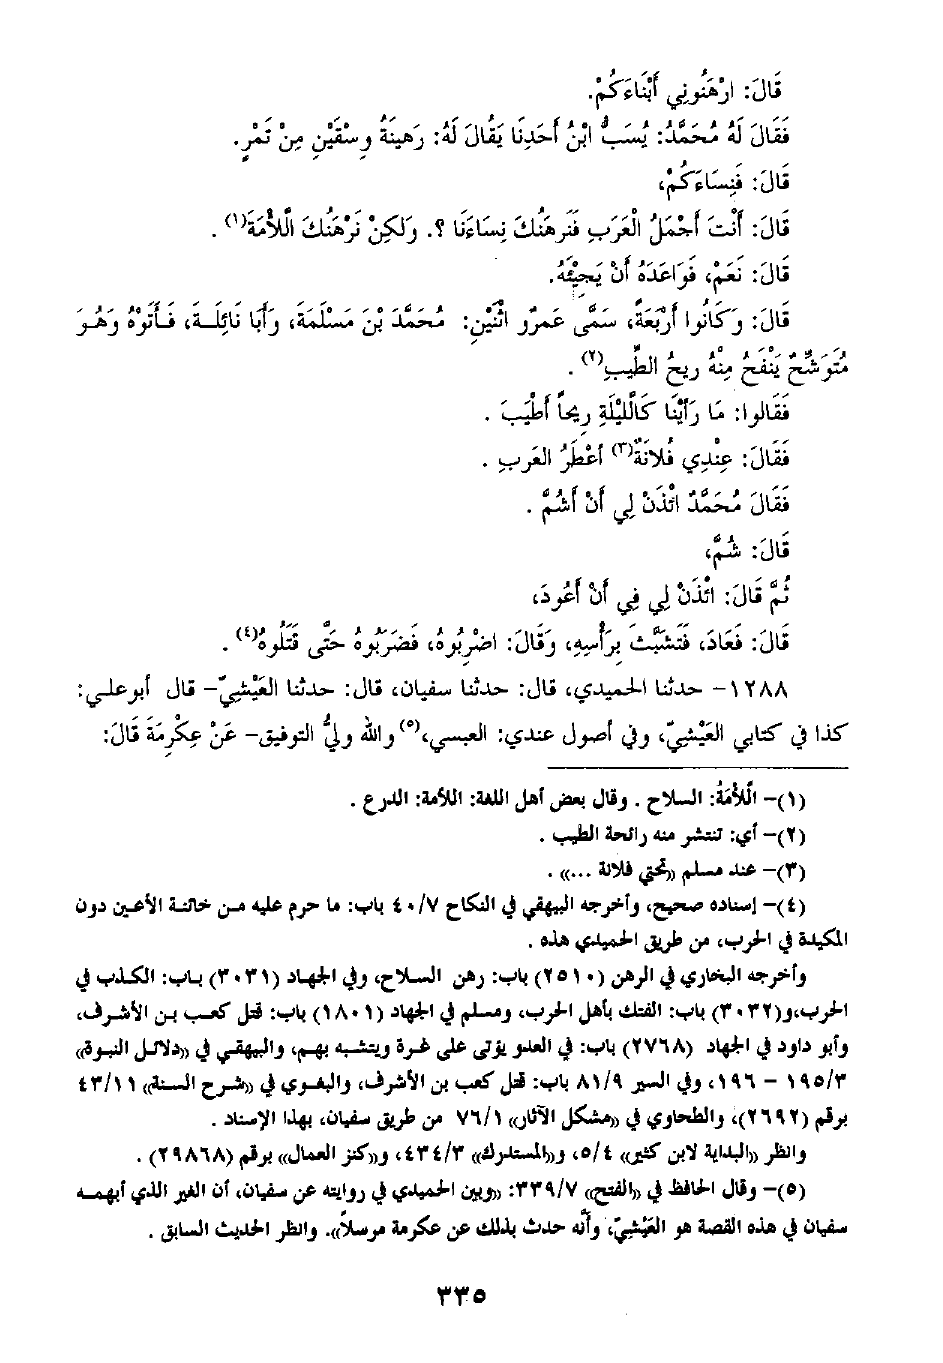 قَالَ: ارْهَنُونِي أَبْنَاءَكُمْ.
فَقَالَ لَهُ مُحَمَّدٌ: يُسَبُّ ابْنُ أَحَدِنَا يُقَالَ لَهُ: رَهِينَةُ وِسْقَيْنِ مِنْ تَمْرٍ.
قَالَ: فَنِسَاءَكُمْ،
قَالَ: أَنْتَ أَجْمَلُ الْعَرَبِ فَنَرهَنُكَ نِسَاءَنَا ؟. وَلكِنْ نَرْهَنُكَ الَّلأْمَةَ(١) .
قَالَ: نَعَمْ، فَوَاعَدَهُ أَنْ يَجِيْئَهُ.
قَالَ: وَكَانُوا أَرْبَعَةً، سَمَّى عَمرٌو اثْنَيْنِ: مُحَمَّدَ بْنَ مَسْلَمَةَ، وَأَبَا نَائِلَـةَ، فَـأَتَوْهُ وَهُـوَ
مُتَوَشِّحٌ يَنْفَحُ مِنْهُ رِيحُ الطِّيبِ(٢) .
فَقَالوا: مَا رَأَيْنَا كَالَّليْلَةِ رِيحاً أَطْيَبَ .
فَقَالَ: عِنْدِي فُلاَنَةٌ(٣) أَعْطَرُ العَربِ .
فَقَالَ مُحَمَّدٌ ائْذَنْ لِي أَنْ أَشُمَّ .
قَالَ: شُمَّ،
ثُمَّ قَالَ: ائْذَنْ لِي فِي أَنْ أَعُودَ،
قَالَ: فَعَادَ، فَتَشَبَّثَ بِرَأْسِهِ، وَقَالَ: اضْرِبُوهُ، فَضَرَبُوهُ حَتَّى قَتَلُوهُ(٤) .
١٢٨٨- حدثنا الحميدي، قال: حدثنا سفيان، قال: حدثنا العَيْشِيّ- قال أبوعلـي:
كذا في كتابي العَيْشِيّ، وفي أصول عندي: العبسي،(٥) والله وليُّ التوفيق- عَنْ عِكْرِمَةَ قَالَ:
(١)- الَّلأْمَةُ: السلاح . وقال بعض أهل اللغة: اللأمة: الدرع .
(٢)- أي: تنتشر منه رائحة الطيب .
(٣)- عند مسلم «تحتي فلانة ...» .
(٤)- إسناده صحيح، وأخرجه البيهقي في النكاح ٤٠/٧ باب: ما حرم عليه مـن خائنـة الأعـين دون
المكيدة في الحرب، من طريق الحميدي هذه .
وأخرجه البخاري في الرهن (٢٥١٠) باب: رهن السلاح، وفي الجهاد (٣٠٣١) بـاب: الكـذب في
الحرب،و(٣٠٣٢) باب: الفتك بأهل الحرب، ومسلم في الجهاد (١٨٠١) باب: قتل كعب بـن الأشرف،
وأبو داود في الجهاد (٢٧٦٨) باب: في العدو يؤتى على غـرة ويتشبه بهم، والبيهقي في «دلائـل النبوة»
١٩٥/٣ - ١٩٦، وفي السير ٨١/٩ باب: قتل كعب بن الأشرف، والبغوي في «شرح السنة» ٤٣/١١
برقم (٢٦٩٢)، والطحاوي في «مشكل الآثار» ٧٦/١ من طريق سفيان، بهذا الإسناد .
وانظر «البداية لابن كثير» ٥/٤، و«المستدرك» ٤٣٤/٣، و«كنز العمال» برقم (٢٩٨٦٨) .
(٥)- وقال الحافظ في «الفتح» ٣٣٩/٧: «وبين الحميدي في روايته عن سفيان، أن الغير الذي أبهمـه
سفيان في هذه القصة هو العَيْشِيّ، وأنَّه حدث بذلك عن عكرمة مرسلاً». وانظر الحديث السابق .
٣٣٥